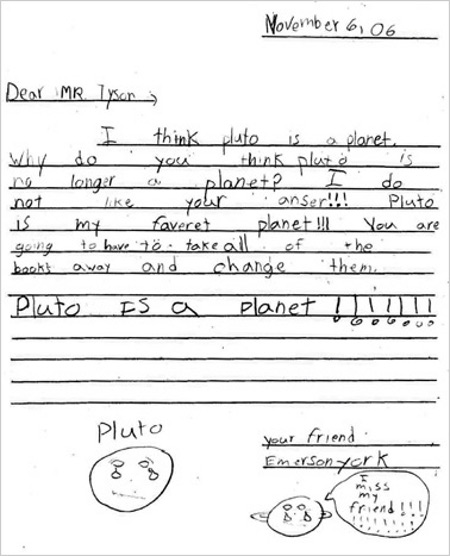 November 6, 06
Dear MR. Tyson,
I think pluto is a planet.
Why do you think pluto is
no longer a planet? I do
not like your anser!!! Pluto
is my faveret planet!!! You are
going to have to take all of the
books away and change them.
Pluto IS a planet !!!!!!!
Pluto
your friend
Emerson york
I
miss
my
friend!!!
!!!!!!